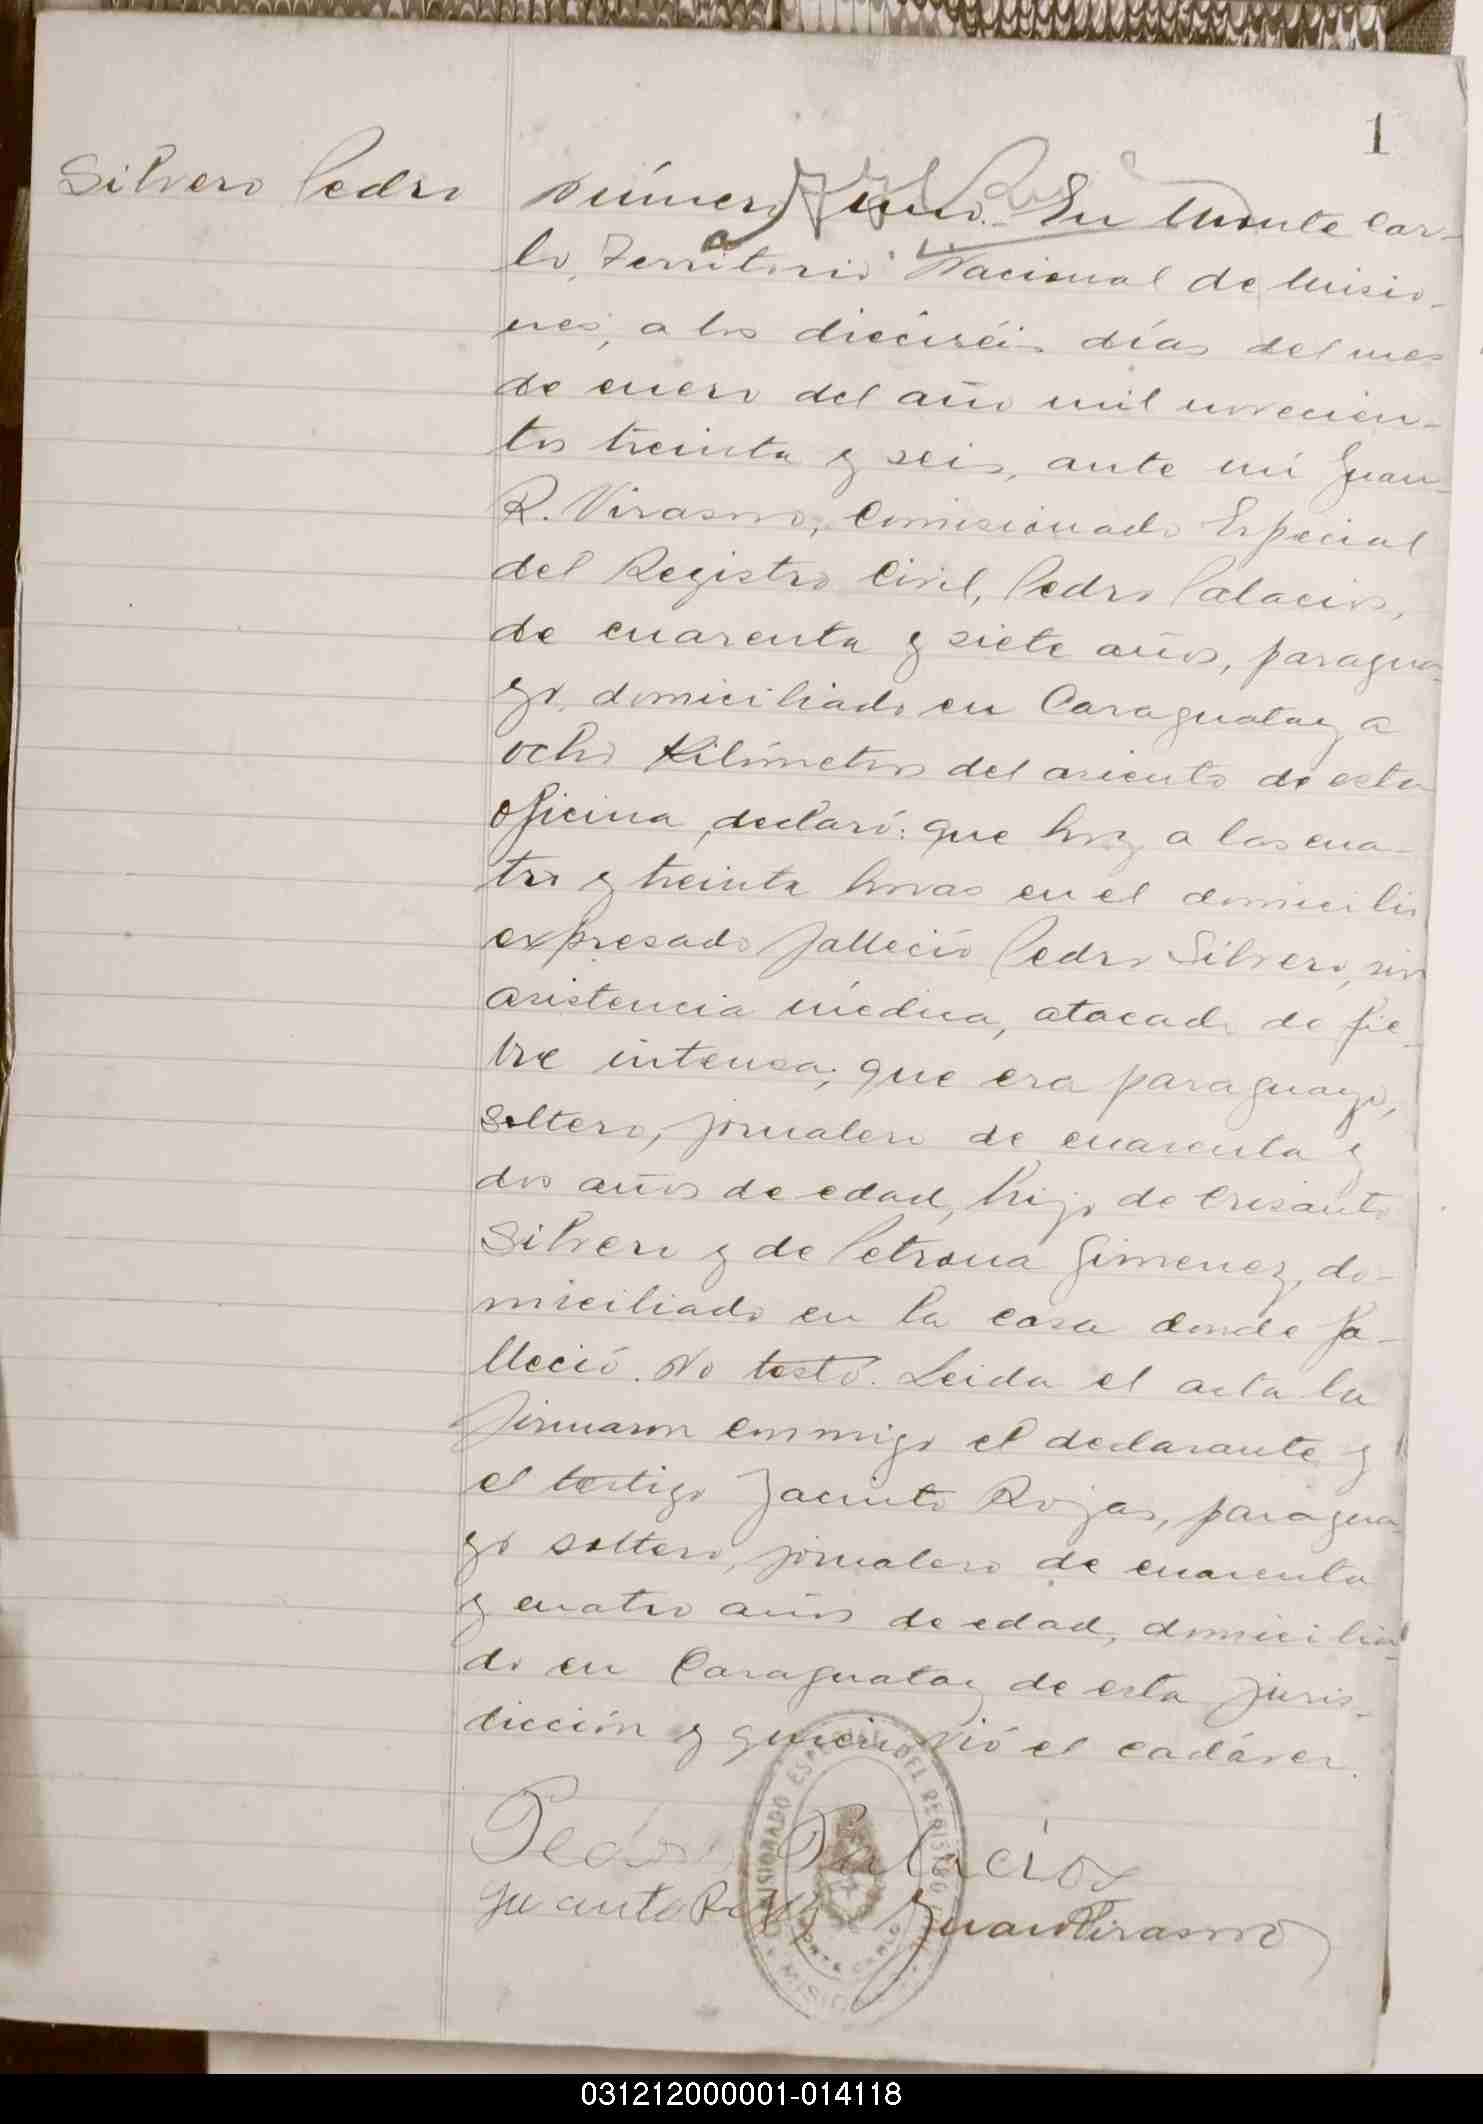 1
Silvero Pedro
Número uno. En Monte Car-
lo, Territorio Nacional de Misio-
nes, a los dieciséis días del mes
de enero del año mil novecien-
tos treinta y seis, ante mí Juan
R. Virasoro, Comisionado Especial
del Registro Civil, Pedro Palacios,
de cuarenta y siete años, paragua-
yo, domiciliado en Caraguatay a
ocho Kilómetros del asiento de esta
oficina, declaró: que hoy a las cua-
tro y treinta horas en el domicilio
expresado falleció Pedro Silvero, sin
asistencia médica, atacado de fie-
bre intensa; que era paraguayo,
soltero, jornalero de cuarenta y
dos años de edad, hijo de Crisanto
Silvero y de Petrona Gimenez, do-
miciliado en la casa donde fa-
lleció. No testó. Leida el acta la
firmaron conmigo el declarante y
el testigo Jacinto Rojas, paragua-
yo soltero, jornalero de cuarenta
y cuatro años de edad, domicilia-
do en Caraguatay de esta juris-
dicción y quien vió el cadáver.
Pedro Palacios
Juan Virasoro
COMISIONADO ESPECIAL DEL REGISTRO
MONTE CARLO
031212000001-014118